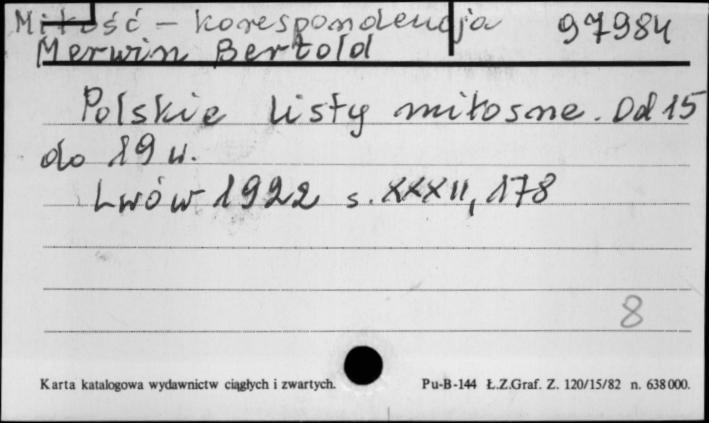 Miłość - korespondencja 97984
Merwin Bertold
Polskie listy miłosne. Od 15
do 19 w.
Lwów 1922 s. XXXII, 178
8
Karta katalogowa wydawnictw ciągłych i zwartych. Pu-B-144 Ł.Z.Graf. Z. 120/15/82 n. 638000.